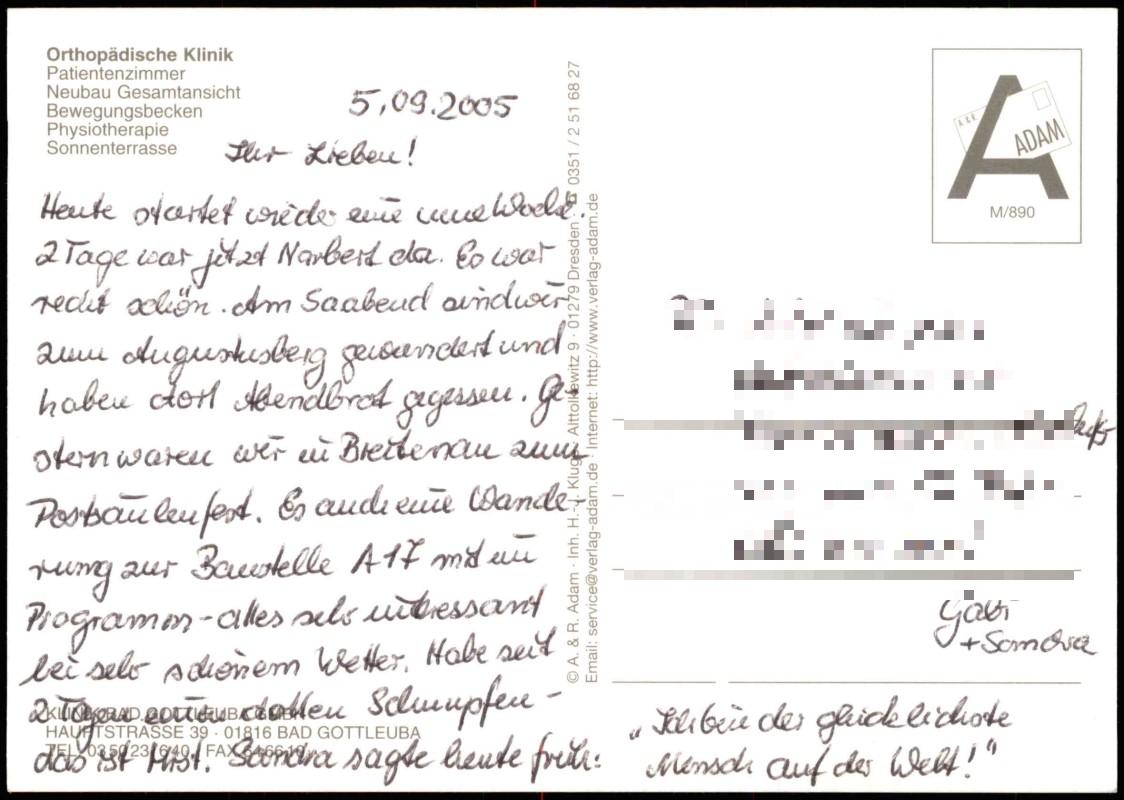 Orthopädische Klinik
Patientenzimmer
Neubau Gesamtansicht
Bewegungsbecken
Physiotherapie
Sonnenterrasse
5.09.2005
Ihr Lieben!
Heute startet wieder eine neue Woche.
2 Tage war jetzt Norbert da. Es war
recht schön. Am Saabend sind wir
zum Augustusberg gewandert und
haben dort Abendbrot gegessen. Ge-
stern waren wir in Breitenau zum
Postsäulenfest. Es auch eine Wande-
rung zur Baustelle A17 mit im
Programm - alles sehr interessant
bei sehr schönem Wetter. Habe seit
2 Tagen einen tollen Schnupfen -
das ist Mist! Sandra sagte heute früh:
"Ich bin der glücklichste
Mensch auf der Welt!"
Gabi
+ Sandra
KLINIK BAD GOTTLEUBA GMBH
HAUPTSTRASSE 39 · 01816 BAD GOTTLEUBA
© A. & R. Adam · Inh. H.-J. Klug · Alttolkewitz 9 · 01279 Dresden · ☎ 0351 / 2 51 68 27
Email: service@verlag-adam.de · Internet: http://www.verlag-adam.de
A. & R.
ADAM
M/890